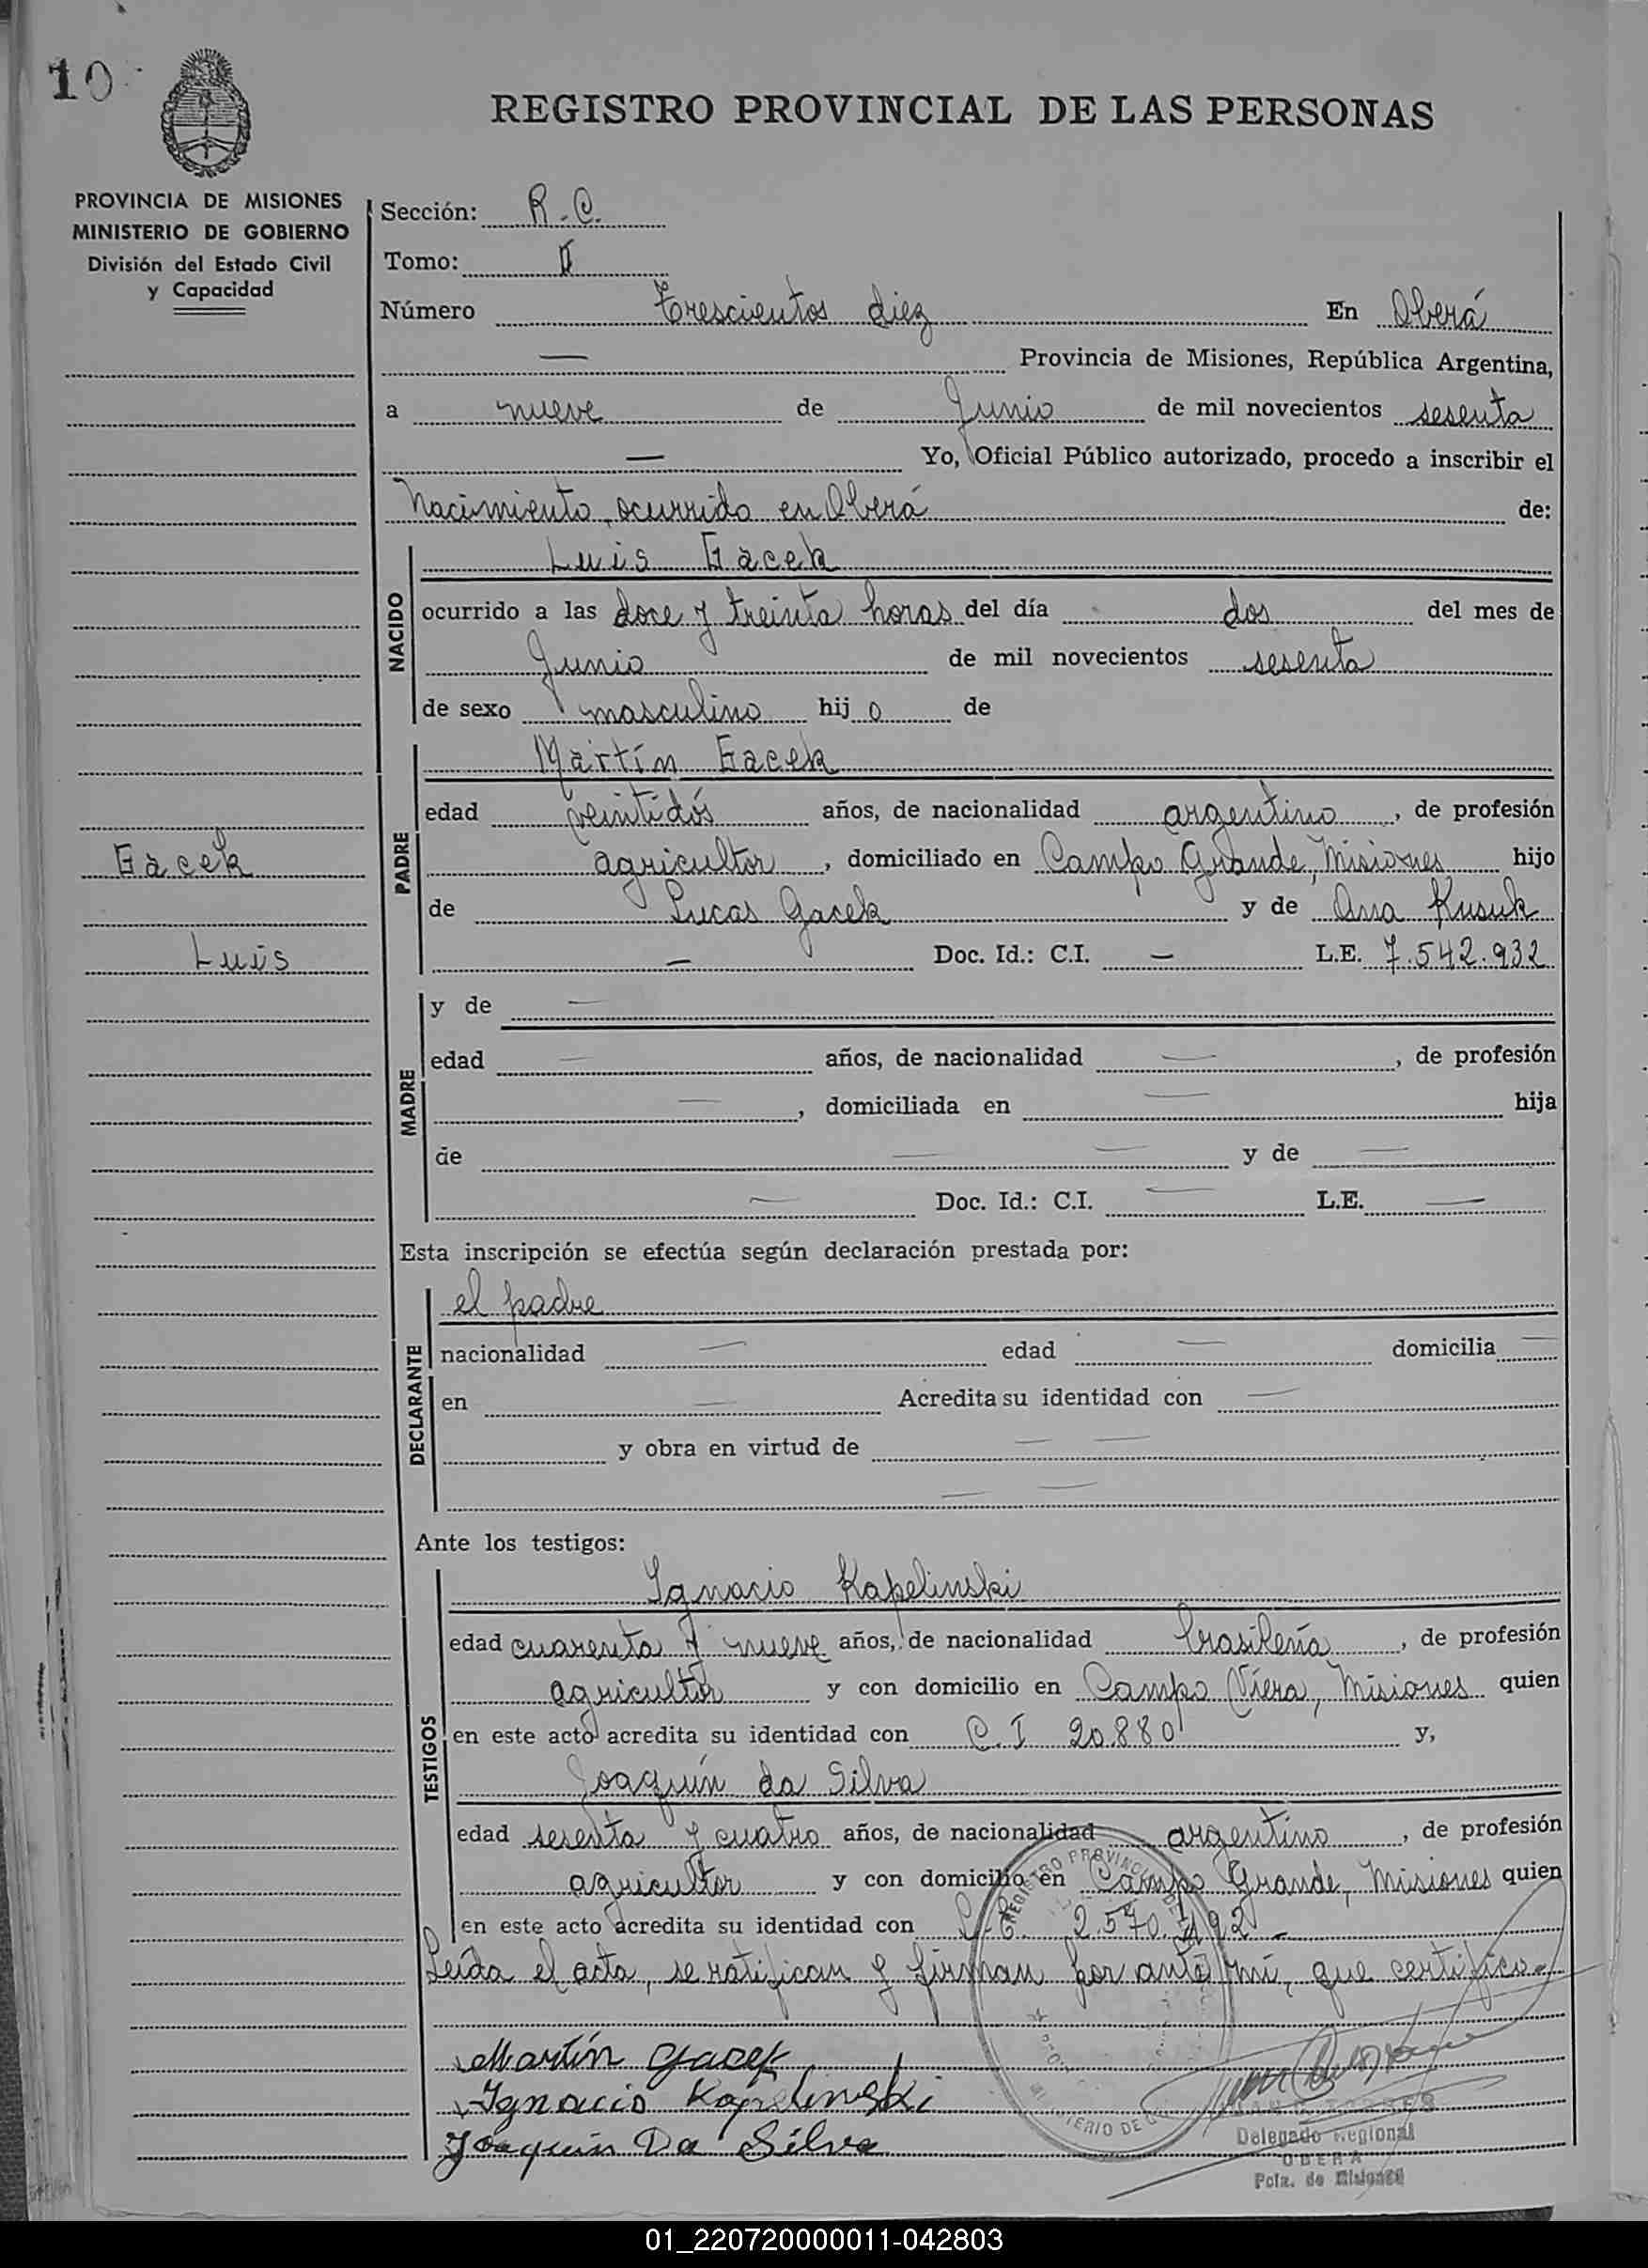 10
REGISTRO PROVINCIAL DE LAS PERSONAS
PROVINCIA DE MISIONES
MINISTERIO DE GOBIERNO
División del Estado Civil
y Capacidad
Sección: R.C.
Tomo: II
Número Trescientos diez En Oberá
— Provincia de Misiones, República Argentina,
a nueve de Junio de mil novecientos sesenta
— Yo, Oficial Público autorizado, procedo a inscribir el
Nacimiento, ocurrido en Oberá de:
NACIDO
Luis Gacek
ocurrido a las doce y treinta horas del día dos del mes de
Junio de mil novecientos sesenta
de sexo masculino hijo de
PADRE
Martín Gacek
edad veintidós años, de nacionalidad argentino, de profesión
agricultor, domiciliado en Campo Grande, Misiones hijo
de Lucas Gacek y de Ana Kusuk
— Doc. Id.: C.I. — L.E. 7.542.932
Gacek
Luis
MADRE
y de —
edad — años, de nacionalidad —, de profesión
—, domiciliada en — hija
de — — y de —
— Doc. Id.: C.I. — L.E. —
Esta inscripción se efectúa según declaración prestada por:
DECLARANTE
el padre
nacionalidad — edad — domicilia —
en — Acredita su identidad con —
y obra en virtud de — —
— —
Ante los testigos:
TESTIGOS
Ignacio Kapelinski
edad cuarenta y nueve años, de nacionalidad brasileña, de profesión
agricultor y con domicilio en Campo Viera, Misiones quien
en este acto acredita su identidad con C.I 20.880 y,
Joaquín da Silva
edad sesenta y cuatro años, de nacionalidad argentino, de profesión
agricultor y con domicilio en Campo Grande, Misiones quien
en este acto acredita su identidad con 2.570.192 —
Leída el acta, se ratifican y firman por ante mí, que certifico.
Martín Gacek
Ignacio Kapelinski
Joaquin Da Silva
REGISTRO PROVINCIAL DE
MINISTERIO DE
Delegado Regional
OBERA
Pcia. de Misiones
01_220720000011-042803